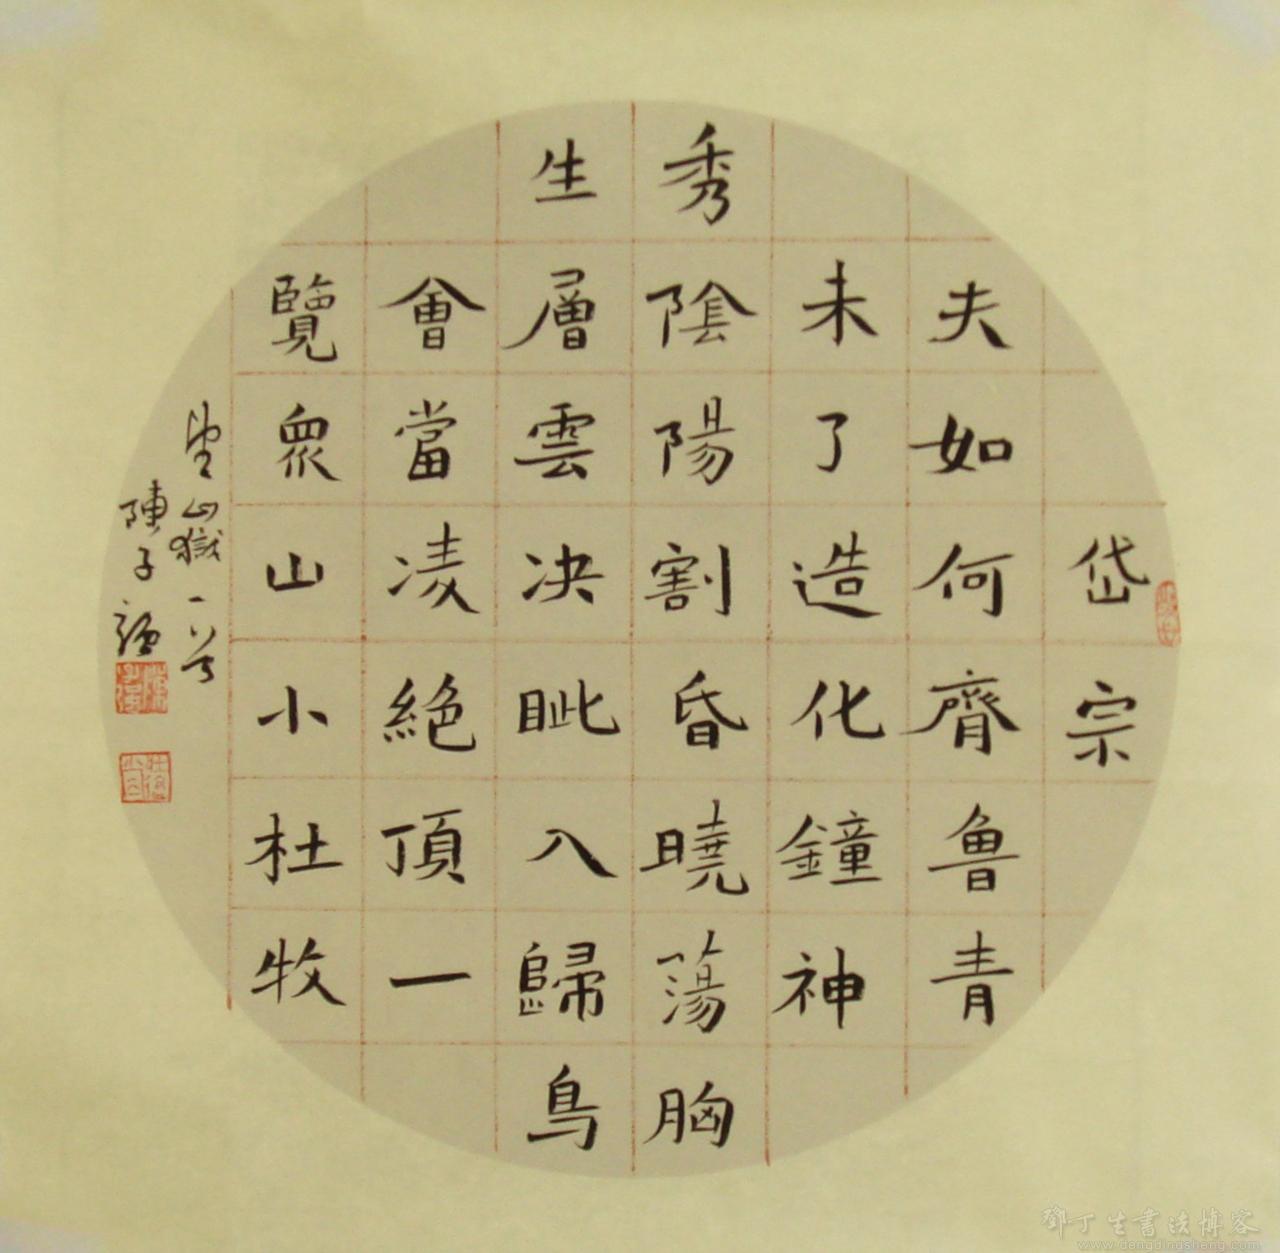 岱宗
夫如何齊魯青
未了造化鐘神
秀陰陽割昏曉蕩胸
生層雲決眥入歸鳥
會當凌絕頂一
覽眾山小杜牧
望山嶽一首
陳子
鄧丁生書法博客
www.dengdingsheng.com